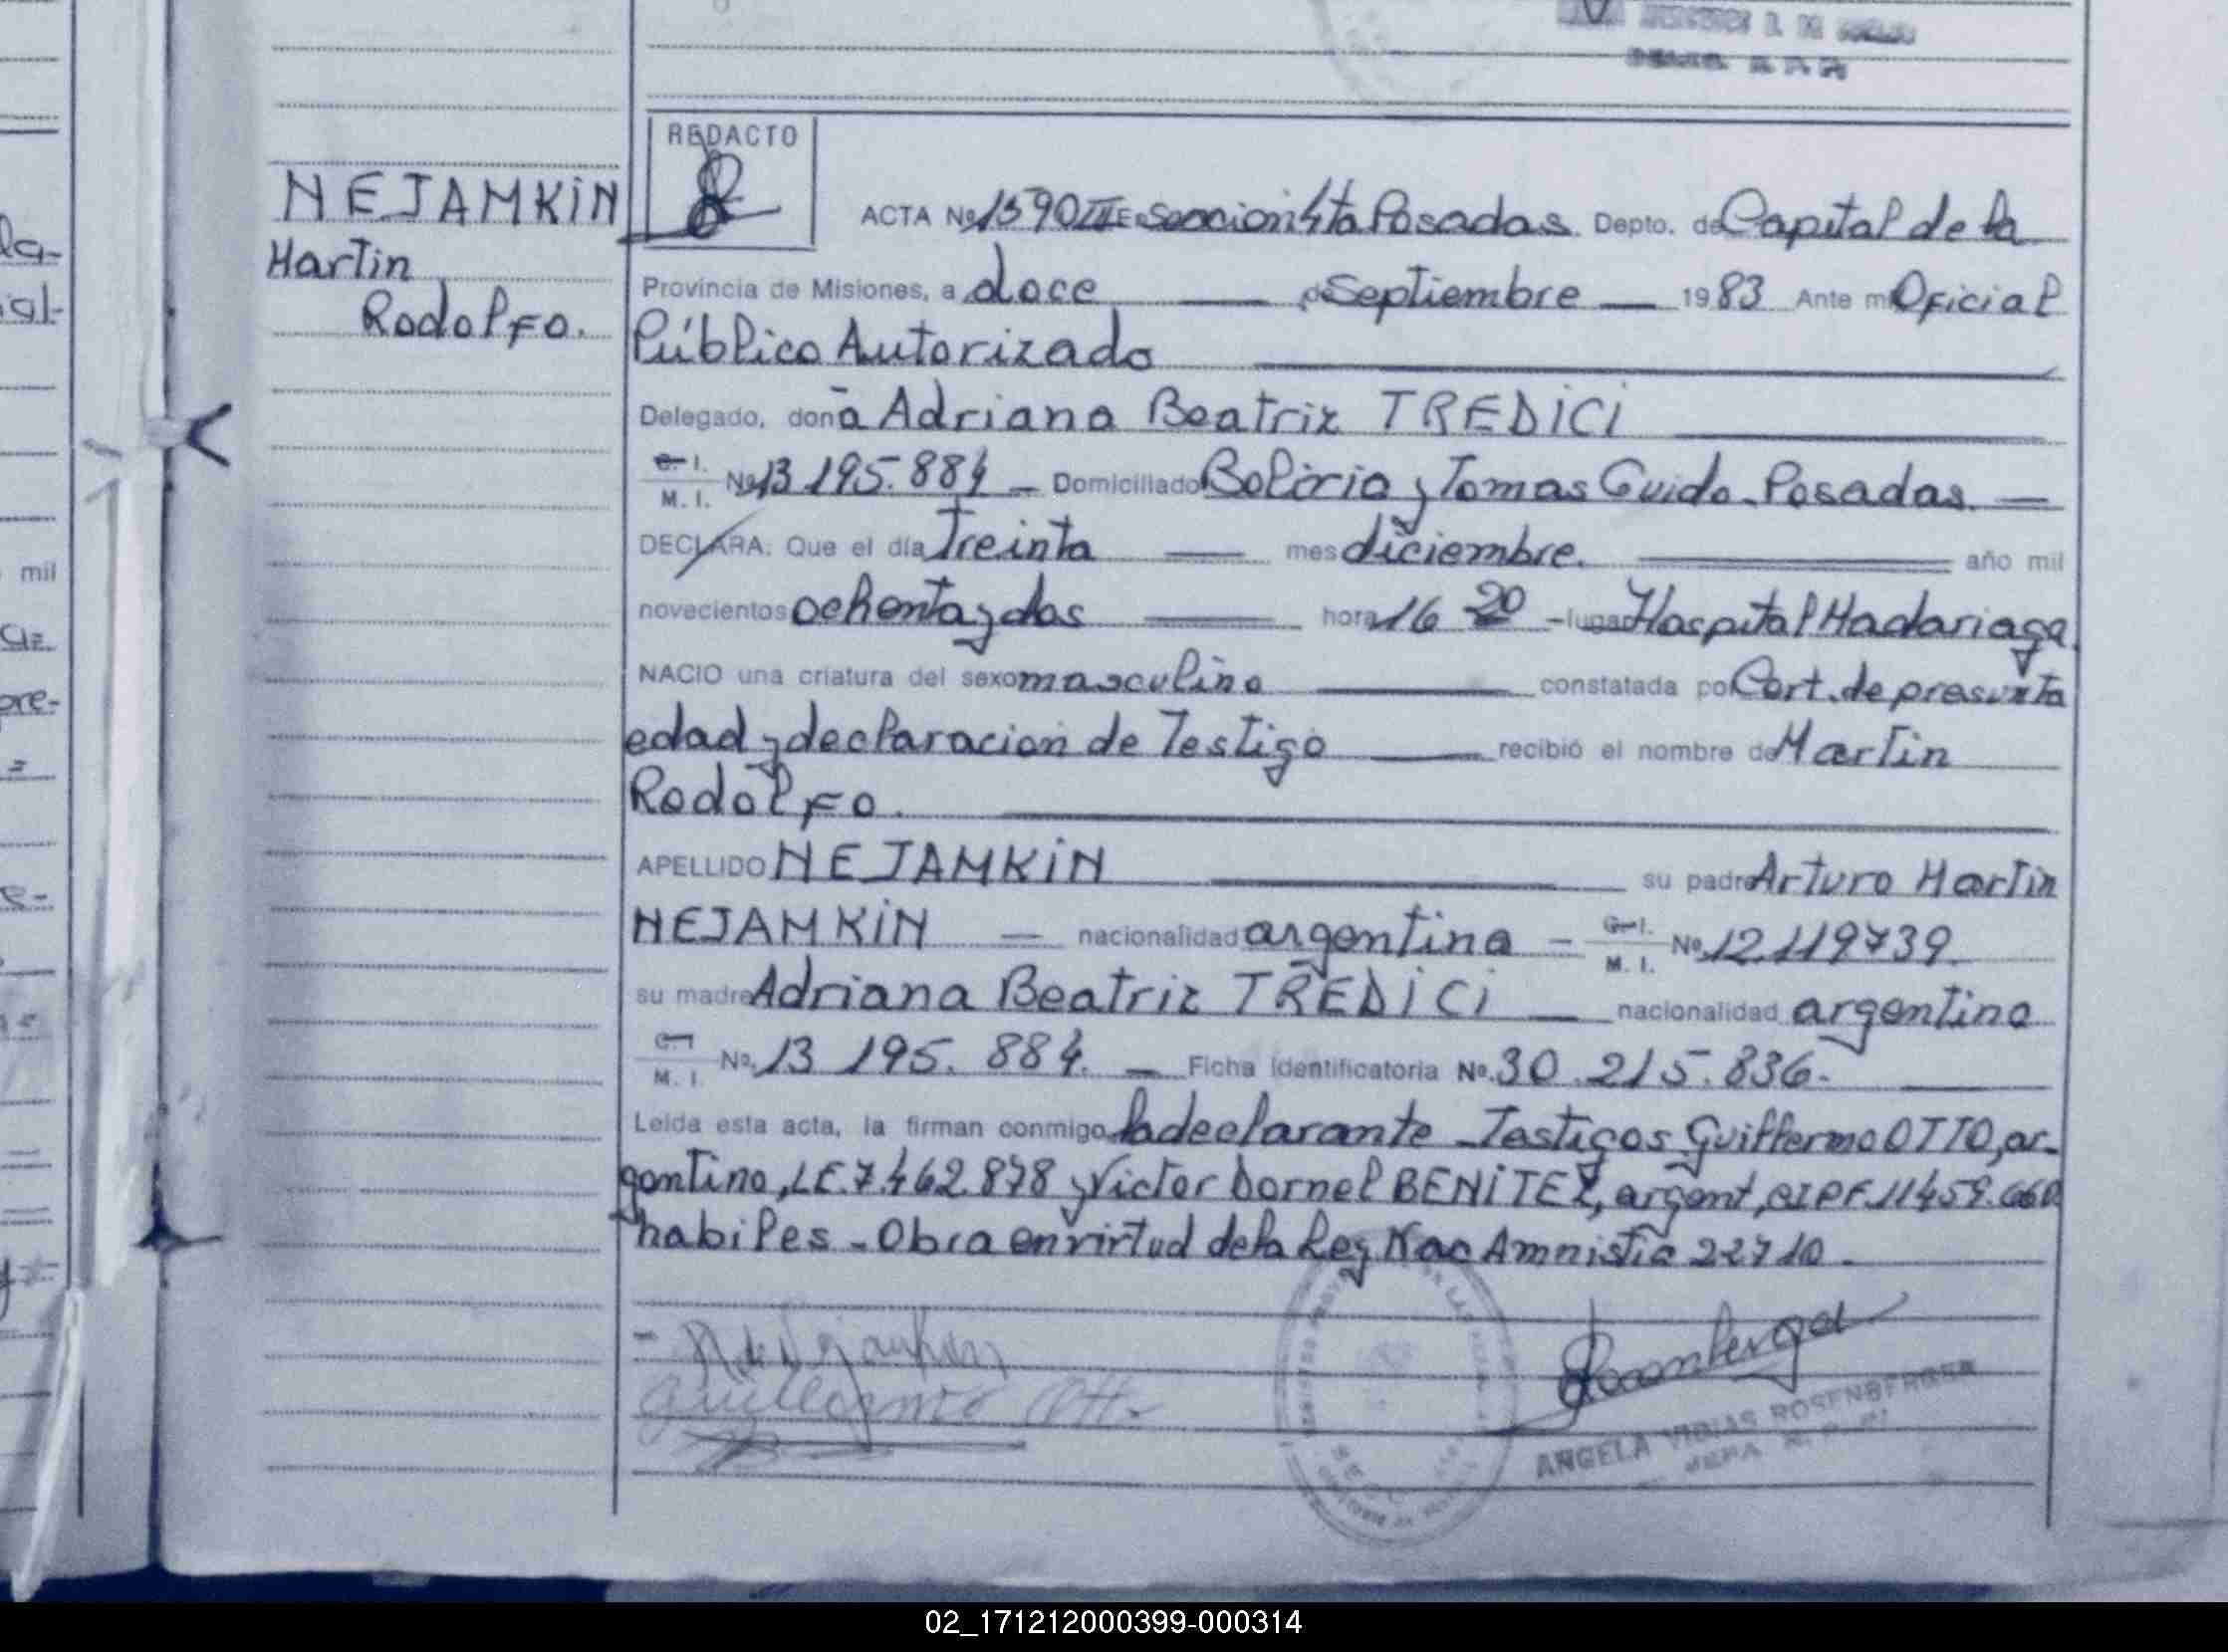 NEJAMKIN
Martin
Rodolfo.
REDACTO
ACTA Nº 1390 III E. Seccion 4ta Posadas. Depto. de Capital de la
Provincia de Misiones, a doce de Septiembre 1983 Ante mi Oficial
Público Autorizado
Delegado, doña Adriana Beatriz TREDICI
C. I. M. I. Nº 13 195.884 Domiciliado Bolivia y Tomas Guido - Posadas.
DECLARA: Que el día Treinta mes diciembre. año mil
novecientos ochenta y dos hora 16 20 - lugar Hospital Madariaga
NACIO una criatura del sexo masculino constatada por Cert. de presunta
edad y declaracion de Testigo recibió el nombre de Martin
Rodolfo.
APELLIDO NEJAMKIN su padre Arturo Martin
NEJAMKIN - nacionalidad argentina - C. I. M. I. Nº 12.119739.
su madre Adriana Beatriz TREDICI nacionalidad argentina
C. I. M. I. Nº 13 195. 884. Ficha Identificatoria Nº. 30.215.836.
Leida esta acta, la firman conmigo la declarante - Testigos Guillermo OTTO, ar-
gentino, LE. 7.462.878 y Victor Dornel BENITEZ, argent, CIPF. 11459.660
habiles - Obra en virtud de la Ley Nac Amnistia 22710.
A de Nejamkin
Guillermo Ott.
Rosenberger
ANGELA VIDIAS ROSENBERGER
mil
02_171212000399-000314